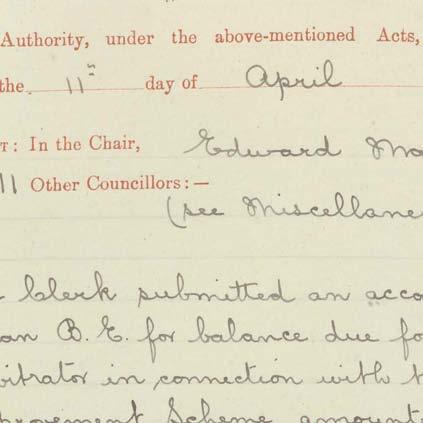 Authority, under the above-mentioned Acts,
the 11th day of April
T: In the Chair, Edward Mo
11 Other Councillors:—
(see Miscellane
clerk submitted an acco
an B. E. for balance due fo
bitrator in connection with t
provement Scheme amount